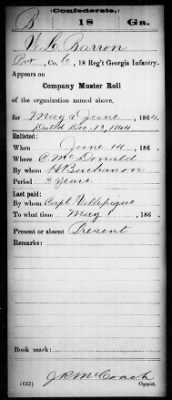 Confederate.
B 18 Ga.
V. L. Barron
Pvt, Co. C, 18 Reg't Georgia Infantry.
Appears on
Company Muster Roll
of the organization named above,
for May & June, 1864.
Dated Dec. 19, 1864
Enlisted:
When June 14, 186 .
Where C. McDonald
By H Buchanon
Period 3 Years
Last paid:
By Capt. Villepigue
To what time May 1, 186 .
Present or absent Present
Remarks:
Book mark:
J R McCoach
Copyist.